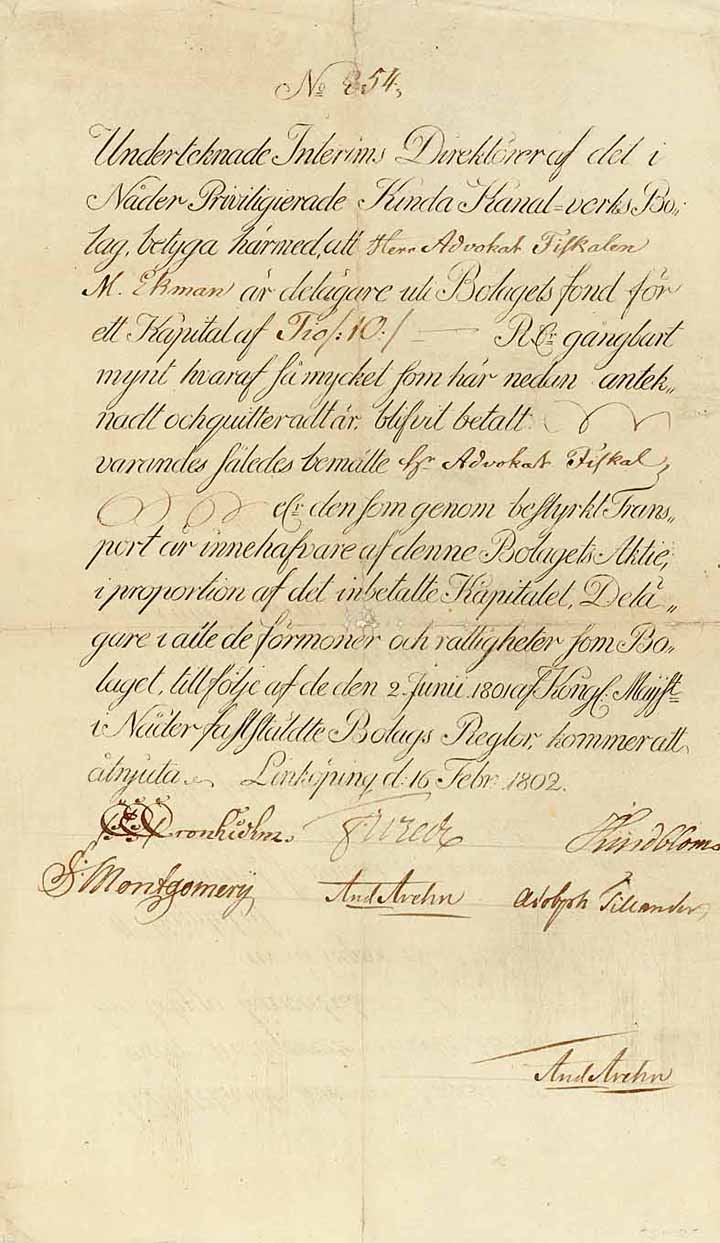 No 254,
Underteknade Interims Direktörer af det i
Nåder Priviligierade Kinda Kanal=verks Bo„
lag, betyga härmed, att Herr Advokat Fiskalen
M. Ekman är delägare uti Bolagets fond för
ett Kapital af Tio /: 10 :/ — R&r gångbart
mynt hvaraf så mycket som här nedan antek„
nadt och quitteradt är, blifvit betalt
varandes således bemälte Hr Advokat Fiskal
eller den som genom bestyrkt Trans„
port är innehafvare af denne Bolagets Aktie,
i proportion af det inbetalte Kapitalet, Delä„
gare i alle de förmoner och rättigheter som Bo„
laget, till följe af de den 2. Junii 1801 af Kongl. Majst
i Nåder fastställdte Bolags Reglor, kommer att
åtnjuta. Linköping d. 16 Febr. 1802.
Kindbloms
S. Montgomery And Avehn Adolph Tillander
And Avehn